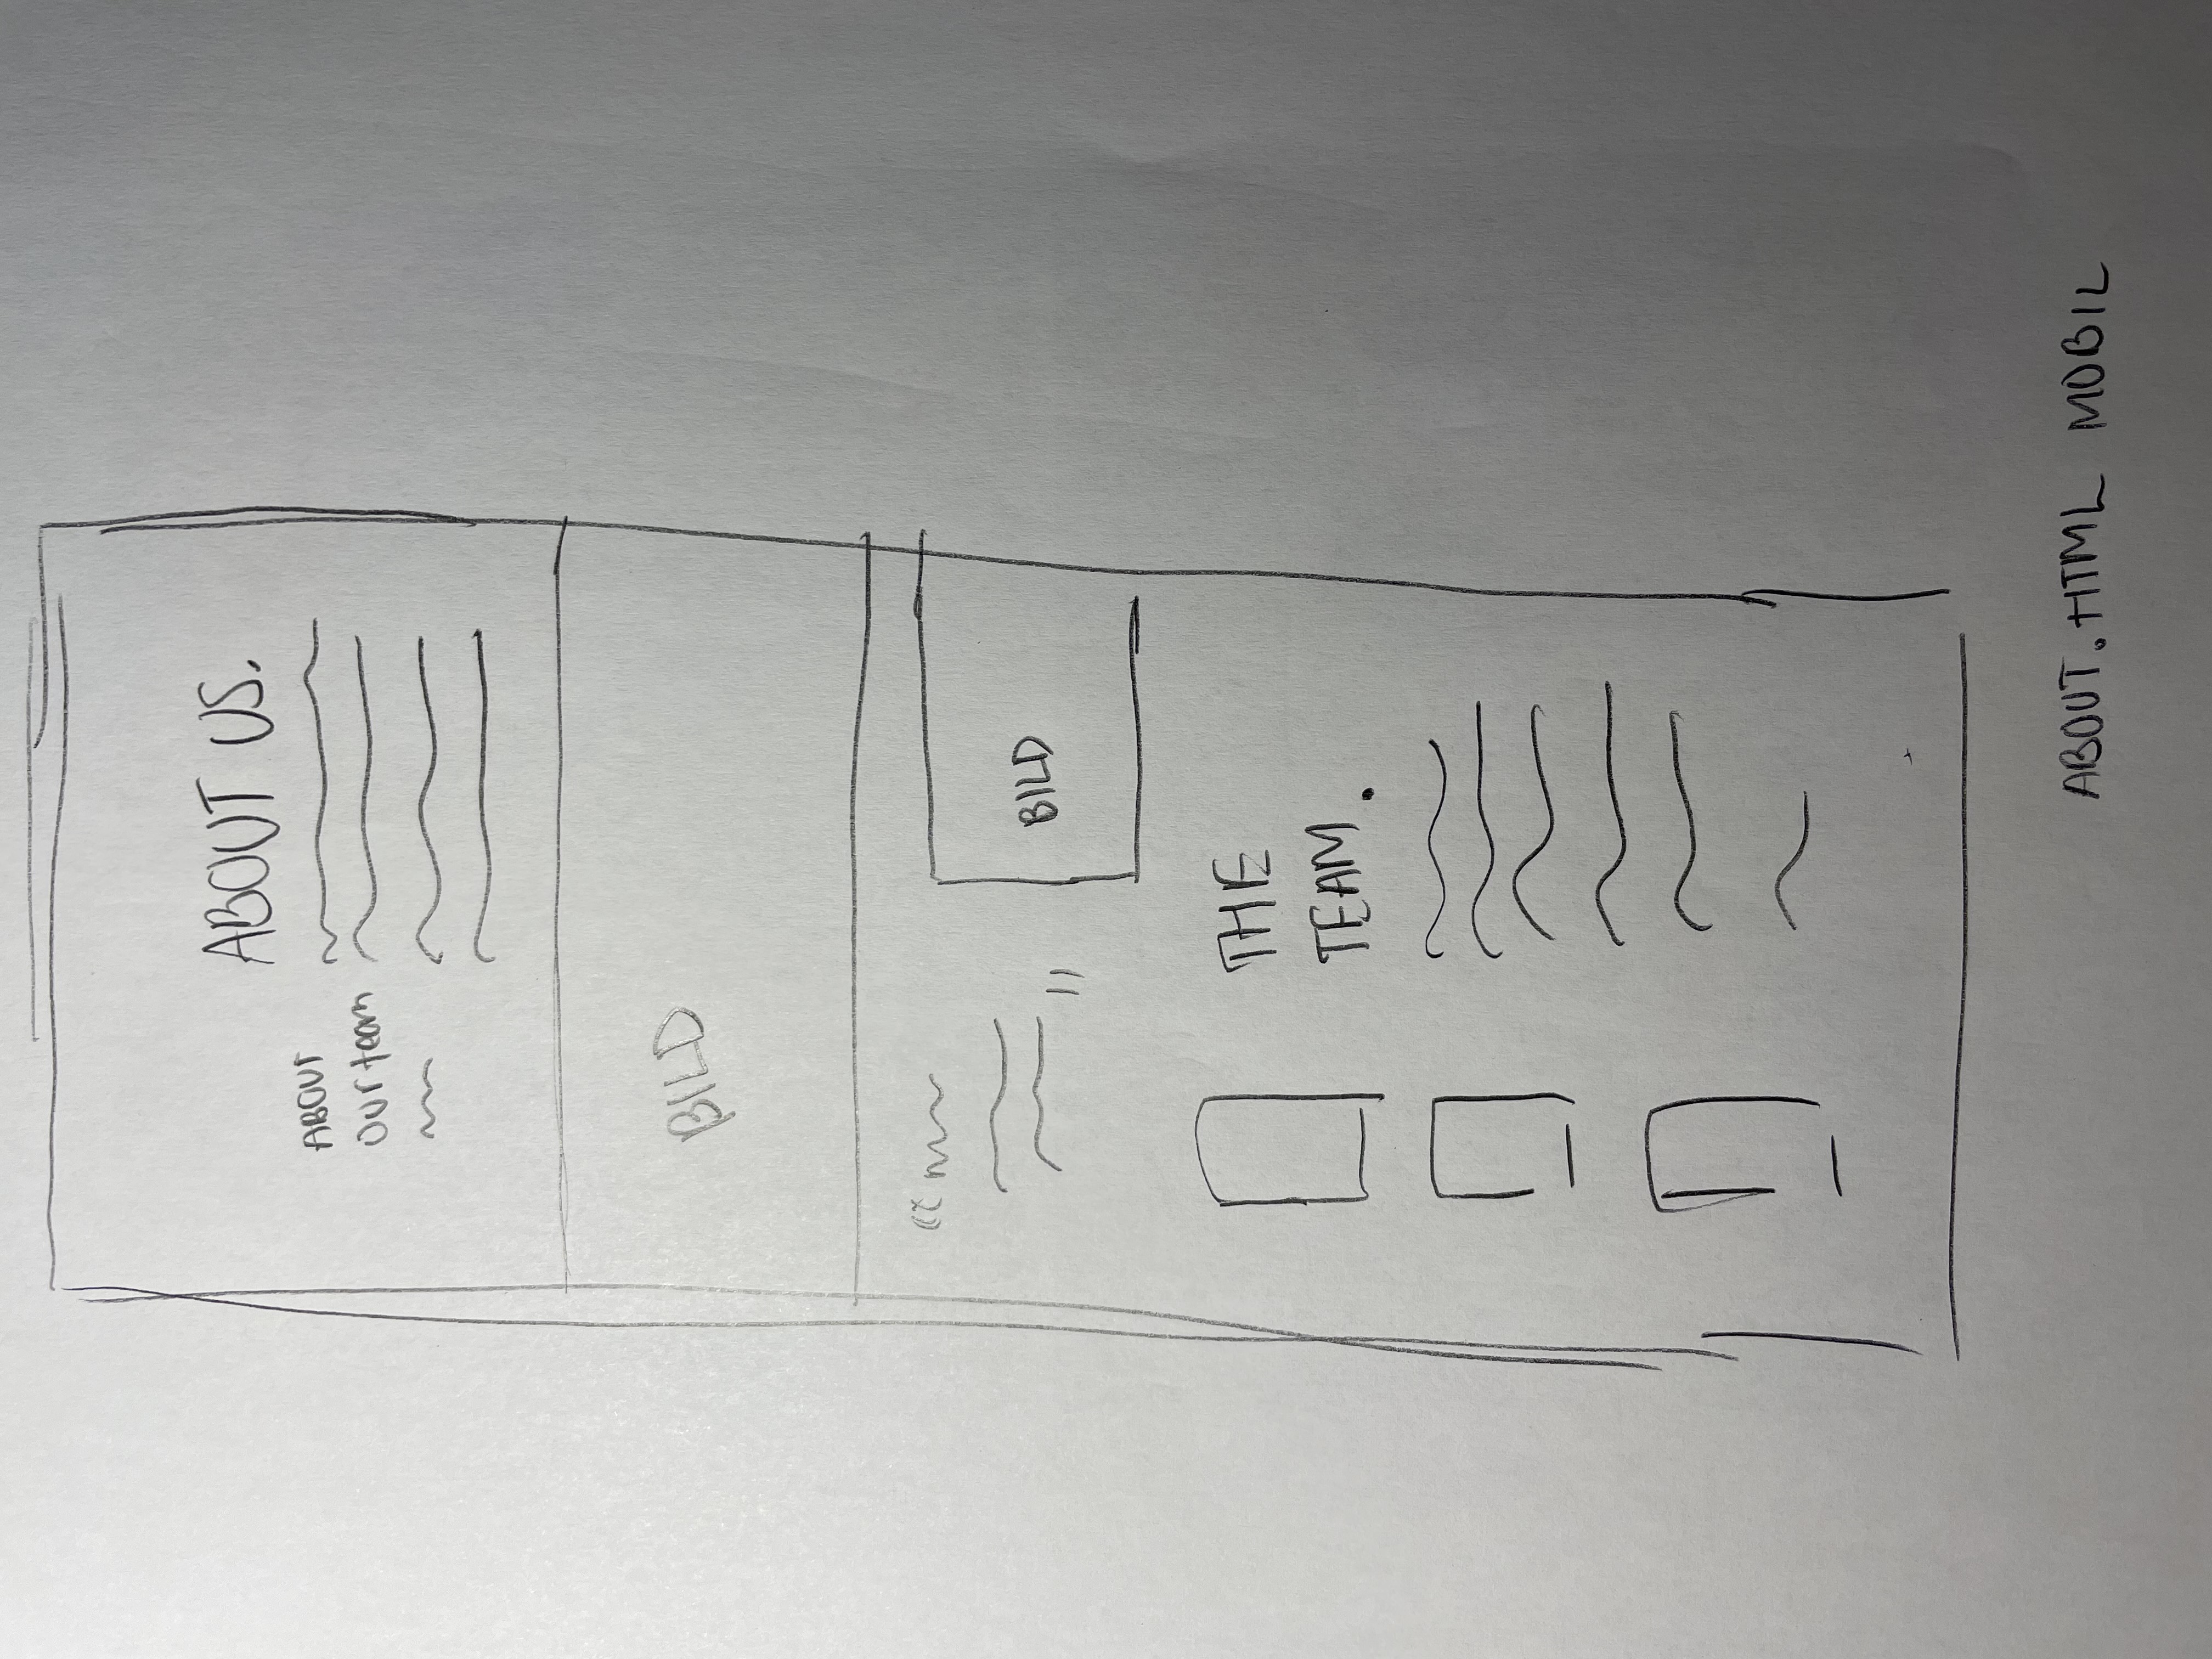 ABOUT US.
ABOUT
Our team
BILD
“
”
BILD
THE
TEAM.
ABOUT.HTML MOBIL